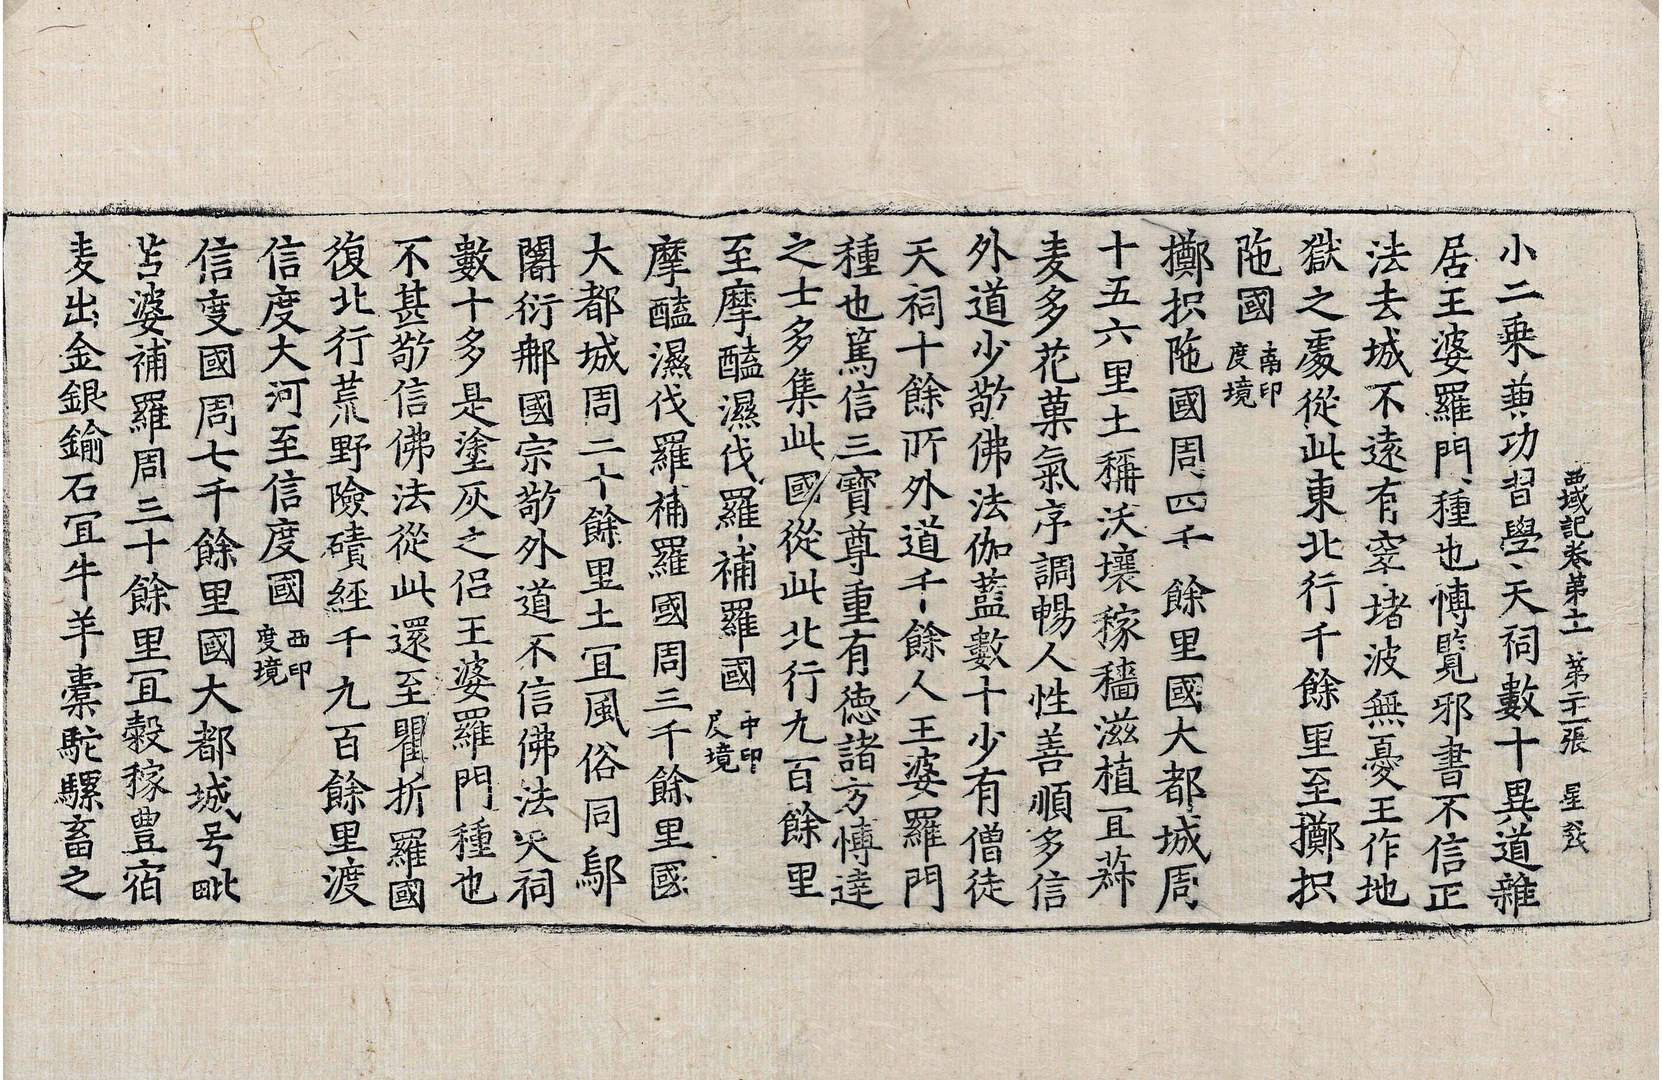 西域記卷第十一 第二十一張 星 茂
小二乗兼功習學天祠數十異道雜
居王婆羅門種也愽覧邪書不信正
法去城不遠有窣堵波無憂王作地
獄之處從此東北行千餘里至擲枳
陁國南印度境
擲枳陁國周四千餘里國大都城周
十五六里土稱沃壤稼穡滋植冝菽
麦多花菓氣序調暢人性善順多信
外道少敬佛法伽藍數十少有僧徒
天祠十餘所外道千餘人王婆羅門
種也篤信三寶尊重有德諸方愽達
之士多集此國從此北行九百餘里
至摩醯濕伐羅補羅國中印度境
摩醯濕伐羅補羅國周三千餘里國
大都城周三十餘里土冝風俗同鄔
闍衍那國宗敬外道不信佛法天祠
數十多是塗灰之侣王婆羅門種也
不甚敬信佛法從此還至瞿折羅國
復北行荒野險磧經千九百餘里渡
信度大河至信度國西印度境
信度國周七千餘里國大都城号毗
苫婆補羅周三十餘里冝穀稼豊宿
麦出金銀鍮石冝牛羊橐駝騾畜之